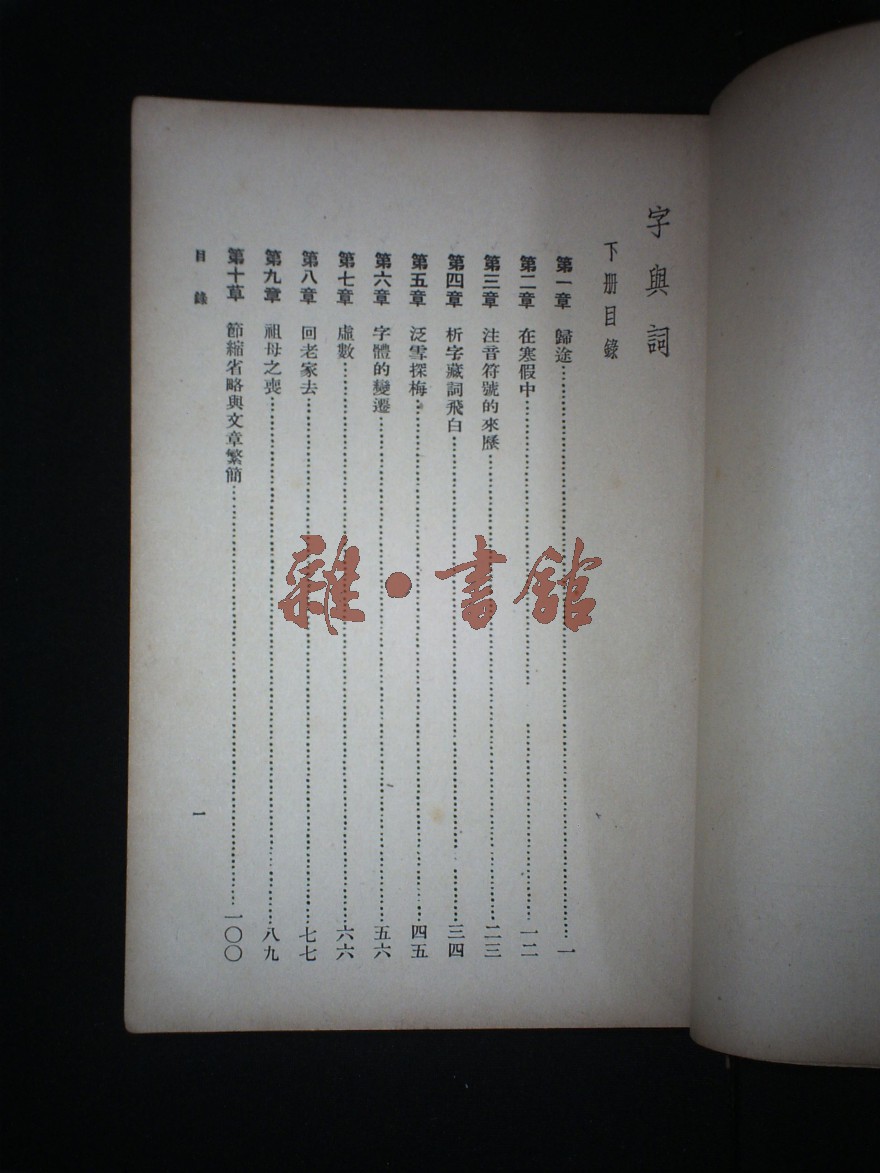 字與詞
下册目錄
第一章 歸途……一
第二章 在寒假中……一二
第三章 注音符號的來歷……二三
第四章 析字藏詞飛白……三四
第五章 泛雪探梅……四五
第六章 字體的變遷……五六
第七章 虛數……六六
第八章 回老家去……七七
第九章 祖母之喪……八九
第十章 節縮省略與文章繁簡……一〇〇
目錄
一
雜·書館